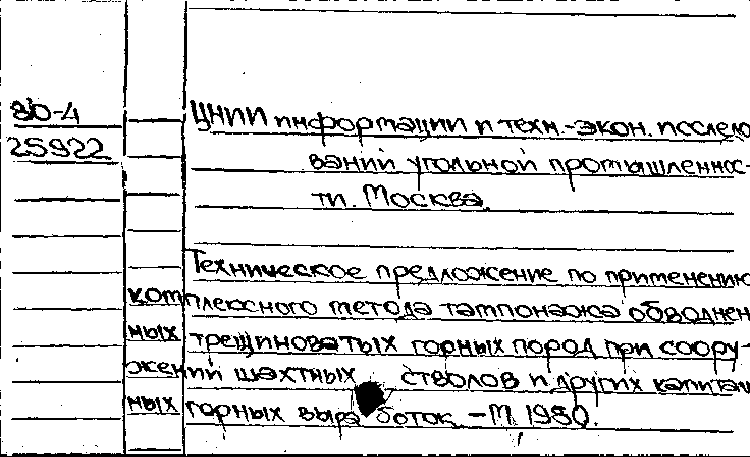 80-4
25922
ЦНИИ информации и техн.-экон. исследо
ваний угольной промышленнос-
ти. Москва.
Техническое предложение по применению
комплексного метода тампонажа обводнен
ных трещиноватых горных пород при соору-
жений шахтных стволов и других капиталь
ных горных выработок. -М. 1980.